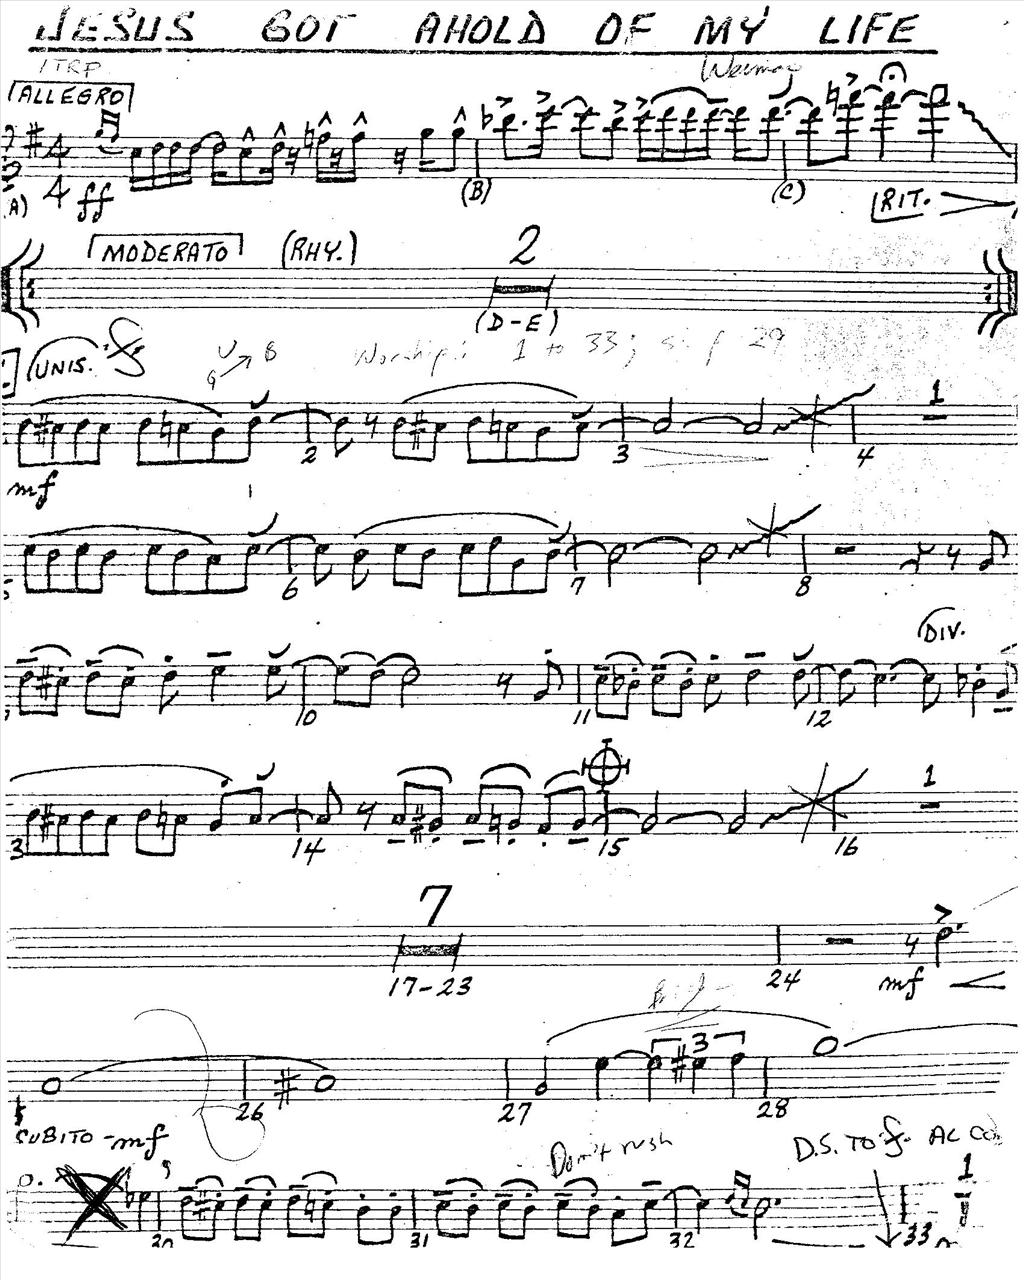 JESUS GOT AHOLD OF MY LIFE
1 TRP
ALLEGRO
4
4
(A)
ff
(B)
(C)
RIT.
MODERATO (RHY.) 2
(D-E)
UNIS.
Worship: 1 to 33;
2 3 4 1
mf
6 7 8
DIV.
10 11 12
3 14 15 16 1
7
17-23 24
mf
3
26 27 28
SUBITO - mf
Don't rush
D.S. TO AL CO
31 32 33 1